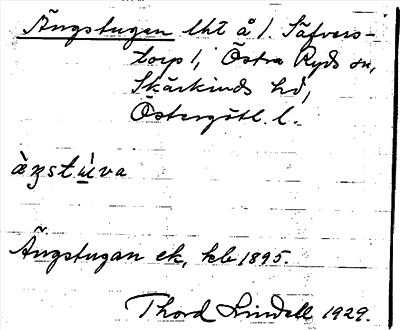 Ängstugan lht å 1. Säfvers-
torp 1, Östra Ryds sn,
Skärkinds hd,
Östergötl. l.
ängstùva
Ängstugan ek, kb 1895.
Thord Lindell 1929.